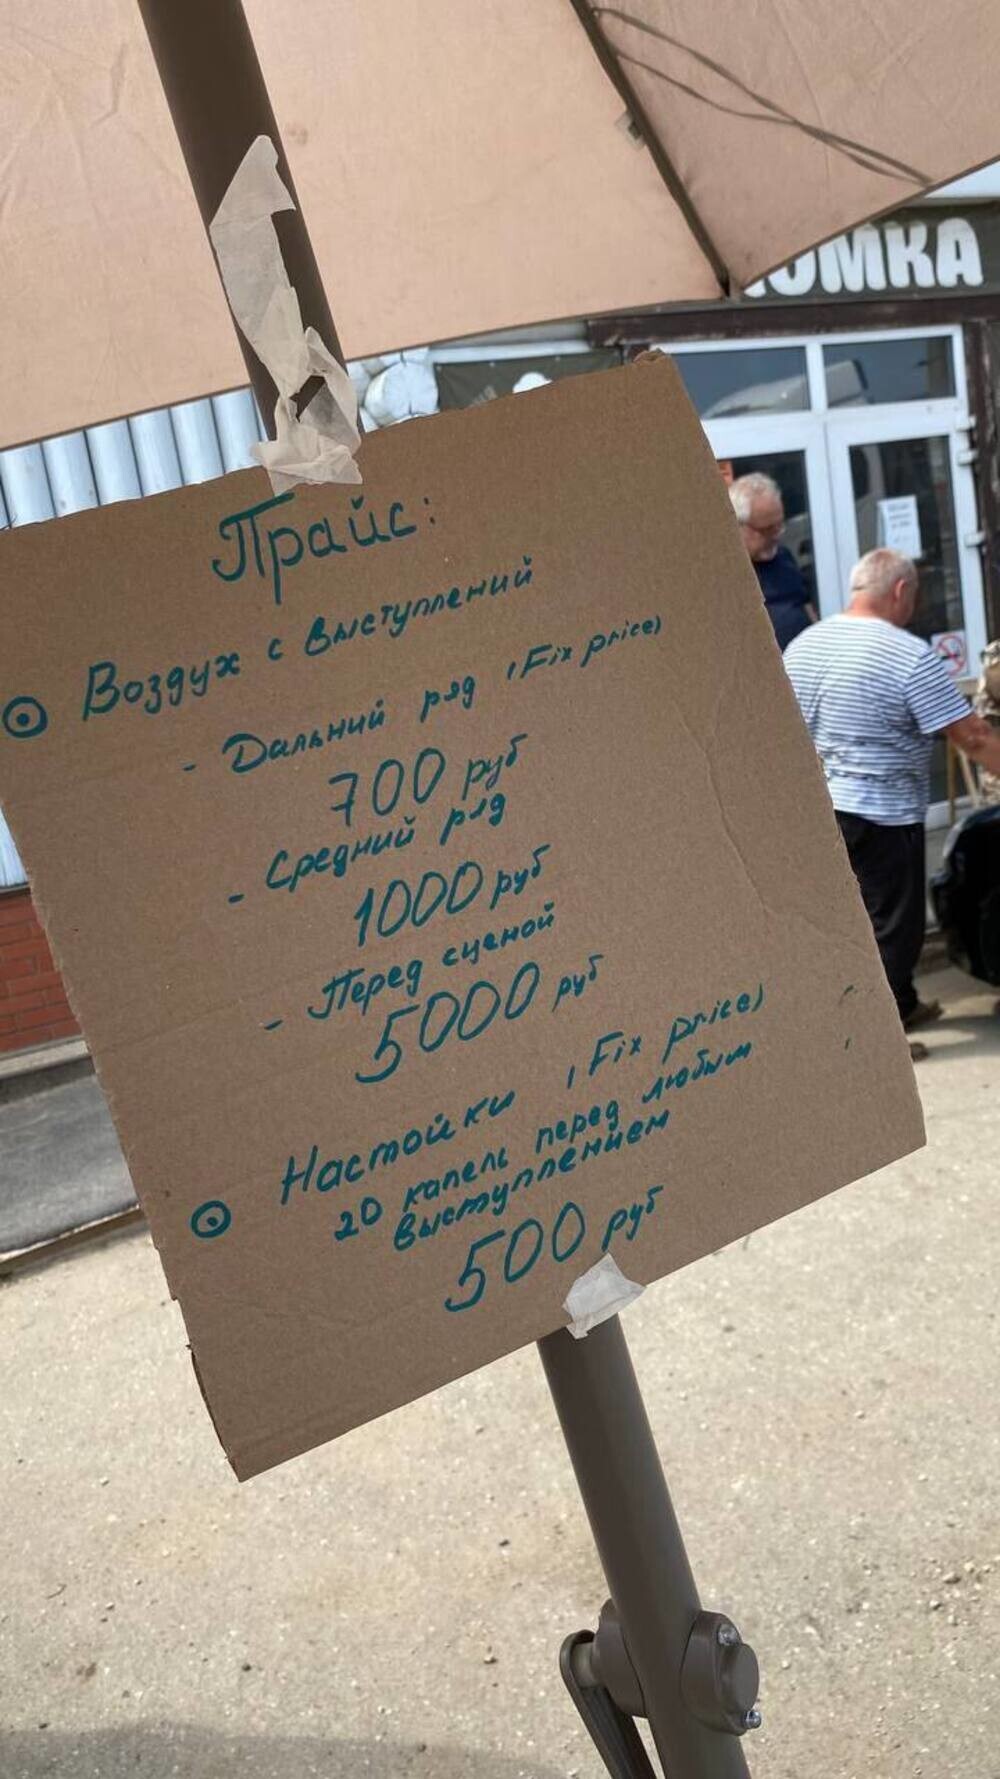 ЮМКА
Прайс:
Воздух с выступлений
- Дальний ряд (Fix price)
700 руб
- Средний ряд
1000 руб
- Перед сценой
5000 руб
Настойки (Fix price)
20 капель перед любым
выступлением
500 руб